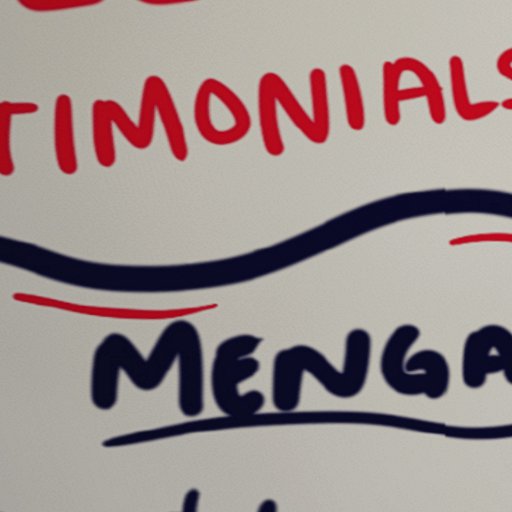 TIMONIALS
MENGA